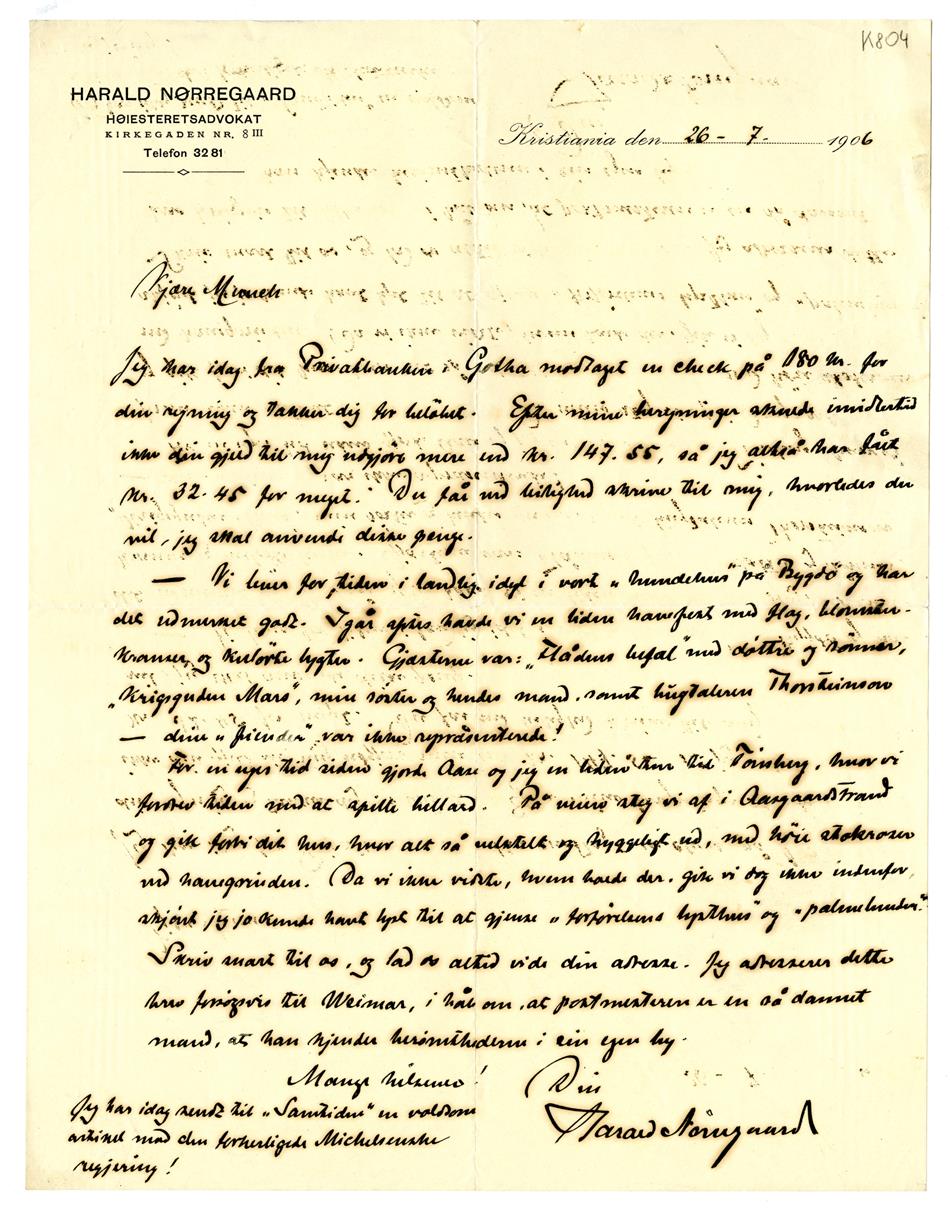 K804
HARALD NØRREGAARD
HØIESTERETSADVOKAT
KIRKEGADEN NR. 8 III
Telefon 3281
Kristiania den 26 – 7. 1906
Kjære Munch
Jeg har idag fra Privatbanken i Gotha modtaget en check på 180 kr. for
din regning og takker dig for beløbet. Efter mine beregninger skulde imidlertid
ikke din gjeld til mig udgjöre mere end kr. 147.55, så jeg altså har fåt
kr. 32.45 for meget. Du får ved leilighed skrive til mig, hvorledes du
vil, jeg skal anvende disse penge.
— Vi lever for tiden i landlig idyl i vort „hundehus" på Bygdö og har
det udmerket godt. Igår aftes havde vi en liden havefest med flag, blomster-
kranser og kulörte lygter. Gjæsterne var: „Flådens befal" med døttre og sönner,
„Krigsguden Mars", min söster og hendes mand, samt bugtaleren Thorsteinson
— dine „fiender" var ikke repräsenterede!
For en uges tid siden gjorde Aase og jeg en liden tur til Tönsberg, hvor vi
fordrev tiden med at spille billard. På veien steg vi af i Aasgaardstrand
og gik forbi dit hus, hvor alt så velstelt og hyggeligt ud, med höie stokroser
ved havegrinden. Da vi ikke vidste, hvem boede der, gik vi dog ikke indenfor,
skjönt jeg jo kunde havt lyst til at gjense „forförelsens lysthus" og „palmelunden".
Skriv snart til os, og lad os altid vide din adresse. Jeg adresserer dette
brev forsögsvis til Weimar, i håb om, at postmesteren er en så dannet
mand, at han kjender berömthederne i sin egen by.
Mange hilsener!
Din
Harald Nörregaard
Jeg har idag sendt til „Samtiden" en voldsom
artikel mod den forherligede Michelsenske
regjering!